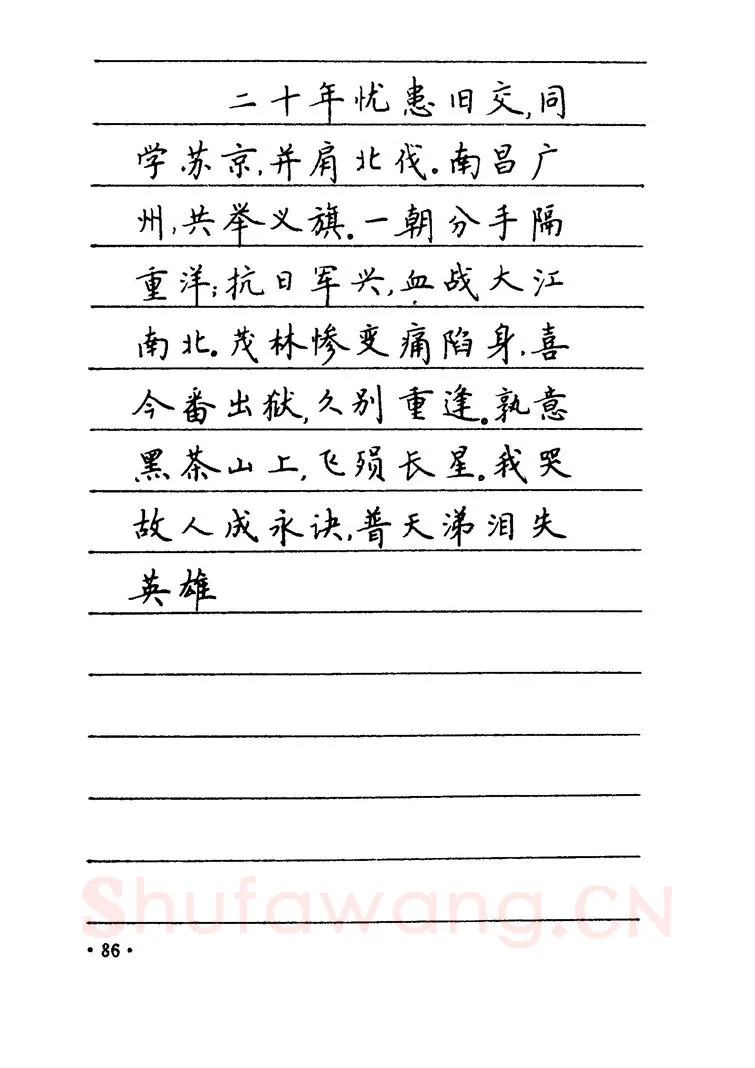 二十年忧患旧交,同
学苏京,并肩北伐。南昌广
州,共举义旗。一朝分手隔
重洋;抗日军兴,血战大江
南北。茂林惨变痛陷身,喜
今番出狱,久别重逢。孰意
黑茶山上,飞殒长星。我哭
故人成永诀,普天涕泪失
英雄
Shufawang.CN
·86·